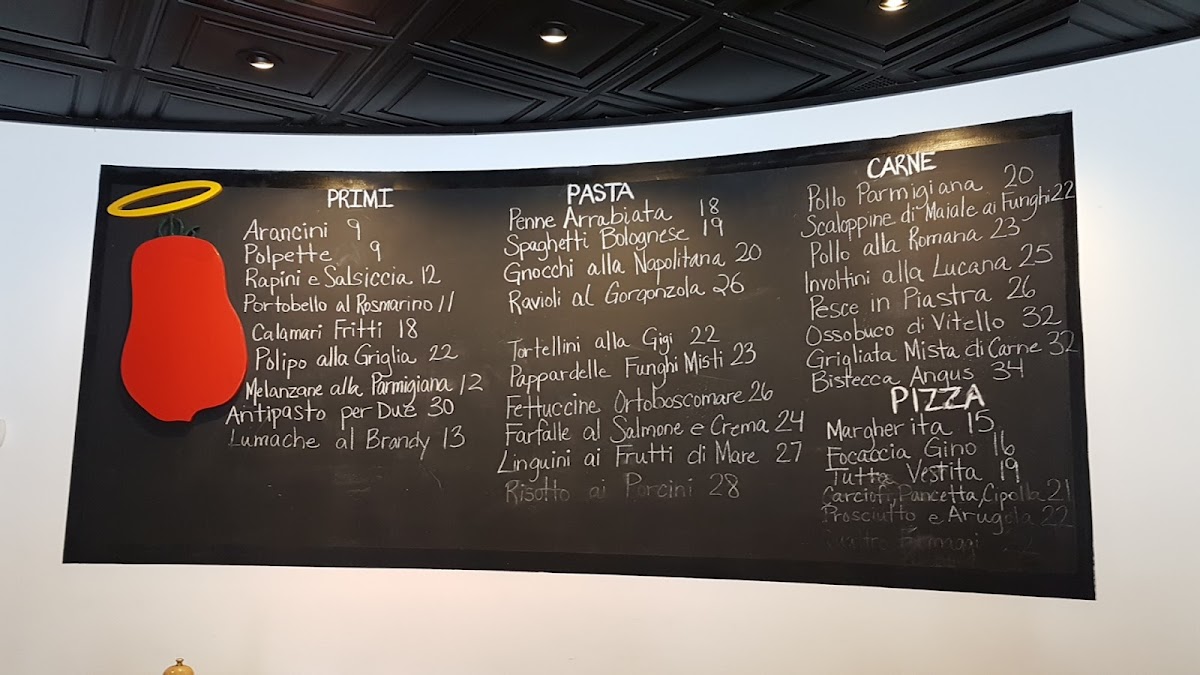 PRIMI
Arancini 9
Polpette 9
Rapini e Salsiccia 12
Portobello al Rosmarino 11
Calamari Fritti 18
Polipo alla Griglia 22
Melanzane alla Parmigiana 12
Antipasto per Due 30
Lumache al Brandy 13
PASTA
Penne Arrabiata 18
Spaghetti Bolognese 19
Gnocchi alla Napolitana 20
Ravioli al Gorgonzola 26
Tortellini alla Gigi 22
Pappardelle Funghi Misti 23
Fettuccine Ortoboscomare 26
Farfalle al Salmone e Crema 24
Linguini ai Frutti di Mare 27
Risotto ai Porcini 28
CARNE
Pollo Parmigiana 20
Scaloppine di Maiale ai Funghi 22
Pollo alla Romana 23
Involtini alla Lucana 25
Pesce in Piastra 26
Ossobuco di Vitello 32
Grigliata Mista di Carne 32
Bistecca Angus 34
PIZZA
Margherita 15
Focaccia Gino 16
Tutta Vestita 19
Carciofi, Pancetta, Cipolla 21
Prosciutto e Arugola 22
Quattro Formaggi